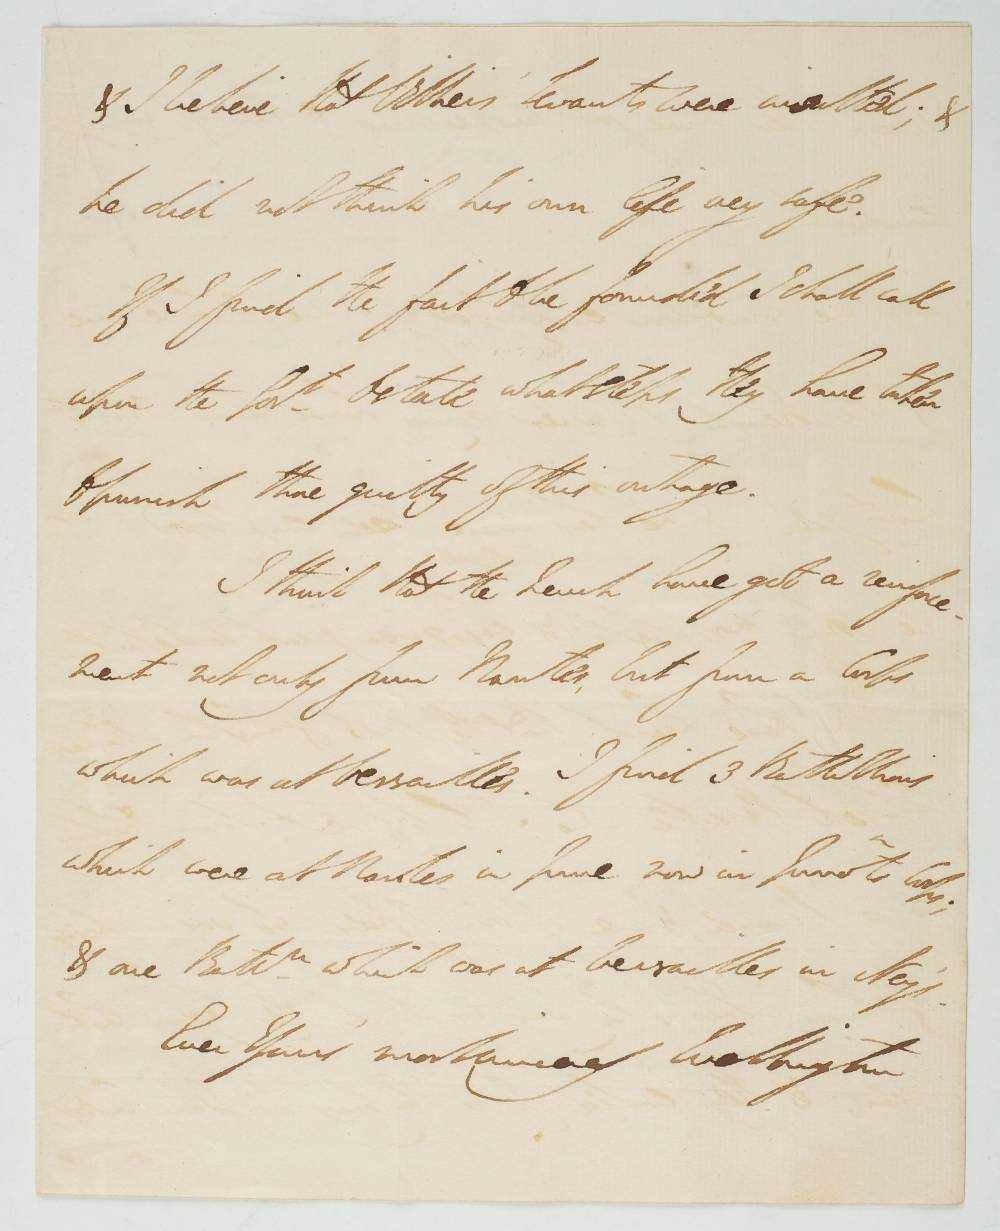 & I believe that Villiers' servants were insulted; &
he did not think his own life very safe.
If I find the fact to be founded I shall call
upon the Govt. to state what steps they have taken
to punish those guilty of this outrage.
I think that the French have got a reinforce-
ment not only from Nantes, but from a Corps
which was at Versailles. I find 3 Battalions
which were at Nantes in June now in Junot's Corps;
& one Battn. which was at Versailles in Ney's.
Ever Yours most sincerely Wellington